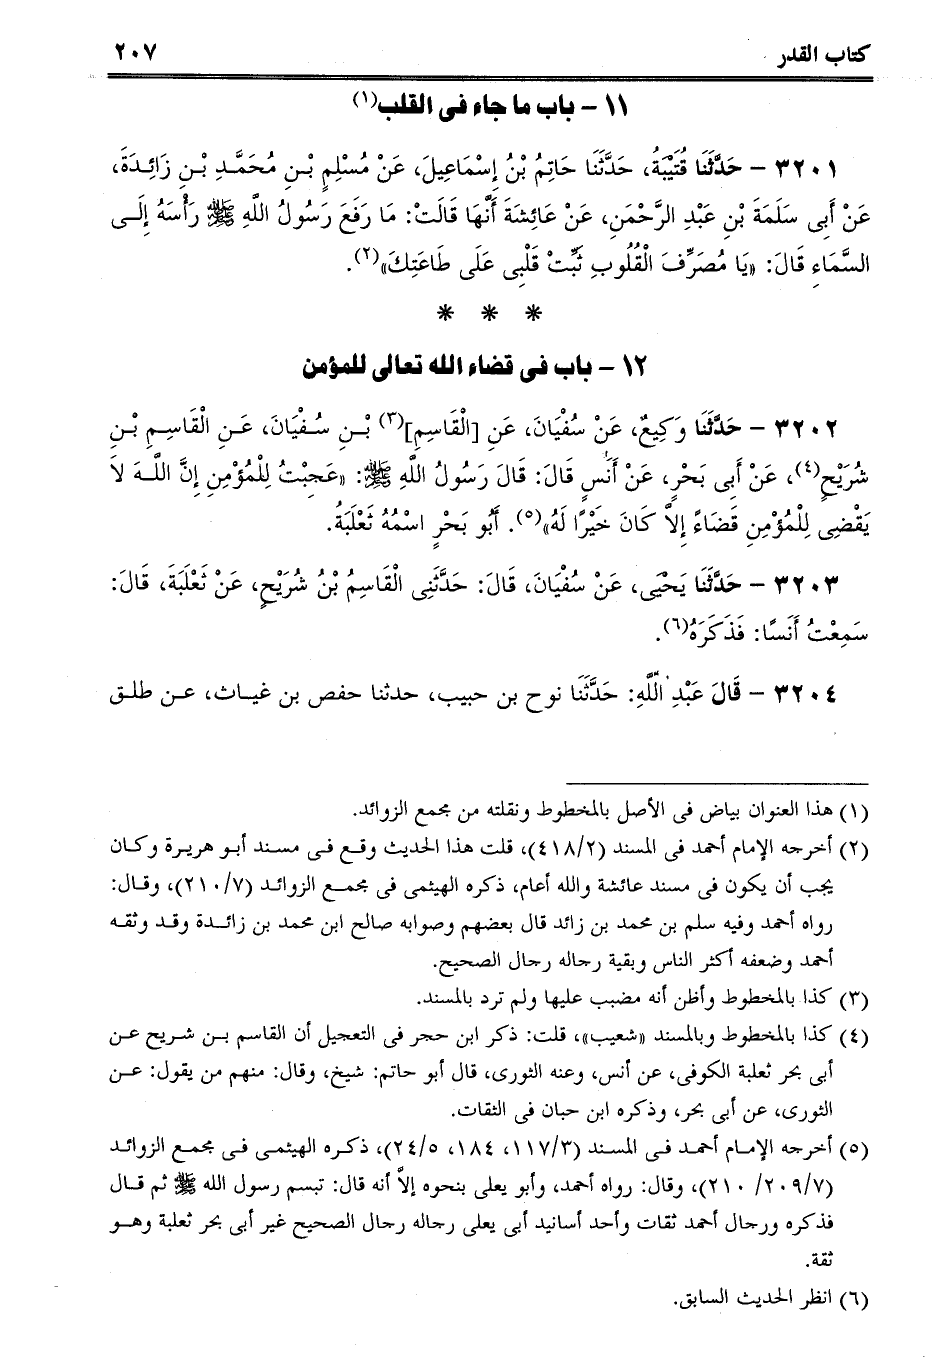 كتاب القدر ٢٠٧
١١ – باب ما جاء فى القلب(١)
٣٢٠١ – حَدَّثَنَا قُتَيْبَةُ، حَدَّثَنَا حَاتِمُ بْنُ إِسْمَاعِيلَ، عَنْ مُسْلِمِ بْنِ مُحَمَّدِ بْنِ زَائِدَةَ،
عَنْ أَبِى سَلَمَةَ بْنِ عَبْدِ الرَّحْمَنِ، عَنْ عَائِشَةَ أَنَّهَا قَالَتْ: مَا رَفَعَ رَسُولُ اللَّهِ ﷺ رَأْسَهُ إِلَى
السَّمَاءِ قَالَ: «يَا مُصَرِّفَ الْقُلُوبِ ثَبِّتْ قَلْبِى عَلَى طَاعَتِكَ»(٢).
* * *
١٢ – باب فى قضاء الله تعالى للمؤمن
٣٢٠٢ – حَدَّثَنَا وَكِيعٌ، عَنْ سُفْيَانَ، عَنِ [الْقَاسِمِ](٣) بْنِ سُفْيَانَ، عَنِ الْقَاسِمِ بْنِ
شُرَيْحٍ(٤)، عَنْ أَبِى بَحْرٍ، عَنْ أَنَسٍ قَالَ: قَالَ رَسُولُ اللَّهِ ﷺ: «عَجِبْتُ لِلْمُؤْمِنِ إِنَّ اللَّهَ لاَ
يَقْضِى لِلْمُؤْمِنِ قَضَاءً إِلاَّ كَانَ خَيْرًا لَهُ»(٥). أَبُو بَحْرٍ اسْمُهُ ثَعْلَبَةُ.
٣٢٠٣ – حَدَّثَنَا يَحْيَى، عَنْ سُفْيَانَ، قَالَ: حَدَّثَنِى الْقَاسِمُ بْنُ شُرَيْحٍ، عَنْ ثَعْلَبَةَ، قَالَ:
سَمِعْتُ أَنَسًا: فَذَكَرَهُ(٦).
٣٢٠٤ – قَالَ عَبْدِ اللَّهِ: حَدَّثَنَا نوح بن حبيب، حدثنا حفص بن غياث، عن طلق
(١) هذا العنوان بياض فى الأصل بالمخطوط ونقلته من مجمع الزوائد.
(٢) أخرجه الإمام أحمد فى المسند (٤١٨/٢)، قلت هذا الحديث وقع فى مسند أبو هريرة وكان
يجب أن يكون فى مسند عائشة والله أعام، ذكره الهيثمى فى مجمع الزوائد (٢١٠/٧)، وقال:
رواه أحمد وفيه سلم بن محمد بن زائد قال بعضهم وصوابه صالح ابن محمد بن زائدة وقد وثقه
أحمد وضعفه أكثر الناس وبقية رجاله رجال الصحيح.
(٣) كذا بالمخطوط وأظن أنه مضبب عليها ولم ترد بالمسند.
(٤) كذا بالمخطوط وبالمسند «شعيب»، قلت: ذكر ابن حجر فى التعجيل أن القاسم بن شريح عن
أبى بحر ثعلبة الكوفى، عن أنس، وعنه الثورى، قال أبو حاتم: شيخ، وقال: منهم من يقول: عن
الثورى، عن أبى بحر، وذكره ابن حبان فى الثقات.
(٥) أخرجه الإمام أحمد فى المسند (١١٧/٣، ١٨٤، ٢٤/٥)، ذكره الهيثمى فى مجمع الزوائد
(٢٠٩/٧ /٢١٠)، وقال: رواه أحمد، وأبو يعلى بنحوه إلاَّ أنه قال: تبسم رسول الله ﷺ ثم قال
فذكره ورجال أحمد ثقات وأحد أسانيد أبى يعلى رجاله رجال الصحيح غير أبى بحر ثعلبة وهو
ثقة.
(٦) انظر الحديث السابق.